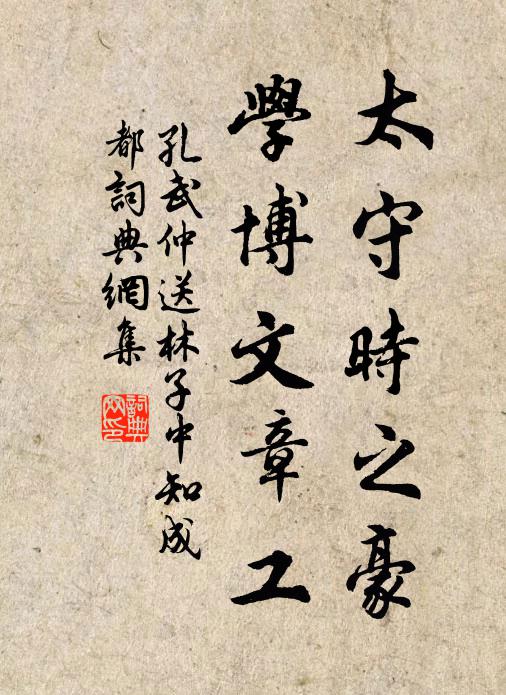 太守時之豪
學博文章工
孔武仲送林子中知成
都詞典網集
詞典網印